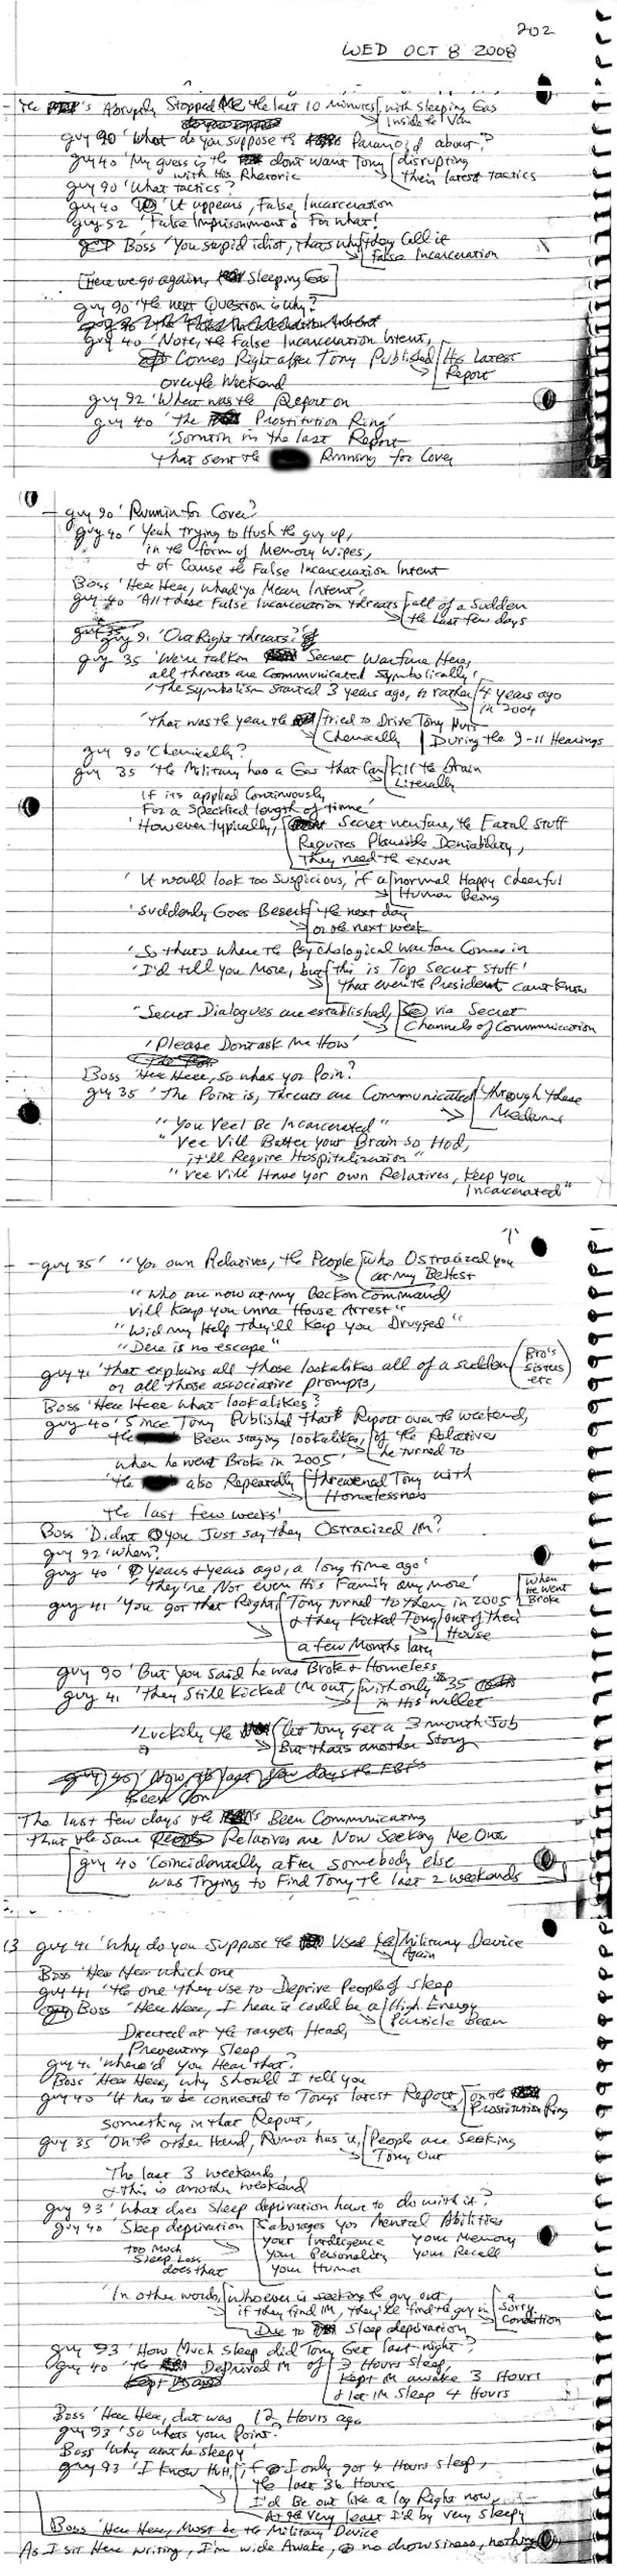 202
WED OCT 8 2008
- The 's Abruptly Stopped Me the last 10 minutes with sleeping Gas
Inside the Van
guy 90 'What do you suppose the Paranoid about?'
guy 40 'My guess is the dont want Tony disrupting
with His Rhetoric their latest tactics
guy 90 'What tactics?
guy 40 'It appears, False Incarceration
guy 52 'False Imprisonment! For what!
Boss 'You stupid idiot, thats why they Call it
False Incarceration
[Here we go again, Sleeping Gas]
guy 90 'the next Question is why?
guy 40 'Note, the False Incarceration Intent,
Comes Right after Tony Published His Latest
Report
over the Weekend
guy 92 'What was the Report on
guy 40 'The Prostitution Ring'
'Somtin in the last Report
that sent the Running for Cover
- guy 90 'Runnin for Cover?
guy 40 'Yeah trying to Hush the guy up,
in the form of Memory Wipes,
& of Cause the False Incarceration Intent
Boss 'Hee Hee, Whad ya Mean Intent?
guy 40 'All these False Incarceration threats all of a Sudden
the Last few days
guy 91 'Out Right threats?'
guy 35 'We're talkin Secret Warfare Here,
all threats are Communicated Symbolically'
'The Symbolism started 3 years ago, or rather 4 years ago
in 2004
'that was the year the tried to Drive Tony Nuts
Chemically During the 9-11 Hearings
guy 90 'Chemically?
guy 35 'the Military has a Gas that Can Kill the Brain
Literally
If its applied Continuously
For a Specified length of time'
'However typically, Secret warfare, the Fatal Stuff
Requires Plausible Deniability,
They need the excuse
'It would look too Suspicious, if a normal Happy Cheerful
Human Being
'Suddenly Goes Beserk the next day
or the next week
'So thats where the Psychological warfare Comes in
'I'd tell you More, but this is Top Secret Stuff'
that even the President cant know
'Secret Dialogues are established, via Secret
Channels of Communication
'Please Dont ask Me How'
Boss 'Hee Hee, so whas yor Poin?
guy 35 'The Point is, threats are Communicated through these
Mediums
"You Veel Be Incarcerated"
"Vee Vill Batter your Brain so Hod,
it'll Require Hospitalization"
"Vee Vill Have yor own Relatives, Keep you
Incarcerated"
- guy 35' "Yor own Relatives, the People who Ostracized you
at my Behest
"Who are now at my Beckon Command
vill Keep you unna House Arrest"
"Wid my Help They'll Keep you Drugged"
"Dere is no escape"
guy 41 'that explains all those lookalikes all of a sudden (Bro's
sisters
etc)
or all those associative prompts,
Boss 'Hee Heee What lookalikes?
guy 40 'Since Tony Published that Report over the weekend,
the Been staging lookalikes, of the Relatives
he turned to
when he went Broke in 2005'
'the also Repeatedly threatened Tony with
Homelessness
the last few weeks'
Boss 'Didnt you Just say they Ostracized IM?
guy 92 'When?
guy 40 'years & years ago, a long time ago'
'they're Not even His Family any more'
guy 41 'You got that Right, Tony turned to them in 2005 When
He went
Broke
& they Kicked Tony out of their
House
a few Months later
guy 90 'But you said he was Broke & Homeless
guy 41 'they Still Kicked IM out, with only $35
in His wallet
'Luckily the let Tony get a 3 month Job
But thats another Story
The last few days the 's Been Communicating
that the Same Relatives are Now Seeking Me Out
guy 40 'Coincidentally after somebody else
was Trying to Find Tony the last 2 weekends
13 guy 41 'Why do you Suppose the Used Military Device
Again
Boss 'Hee Hee which one
guy 41 'the one they use to Deprive People of Sleep
Boss 'Hee Heee, I hear it could be a High Energy
Particle Beam
Directed at the Targets Head,
Preventing Sleep
guy 41 'Where'd you Hear that?
Boss 'Hee Hee, why should I tell you
guy 40 'It has to be connected to Tonys latest Report on the
Prostitution Ring
something in that Report,
guy 35 'On the other Hand, Rumor has it, People are Seeking
Tony Out
The last 3 weekends,
& this is another weekend
guy 93 'What does sleep deprivation have to do with it?
guy 40 'Sleep deprivation Sabotages yor Mental Abilities
Too Much
Sleep Loss
does that
your Intelligence your Memory
your Personality your Recall
your Humor
'In other words, Whoever is seeking the guy out,
if they find IM, they'll find the guy in a
Sorry
Condition
Due to Sleep deprivation
guy 93 'How Much Sleep did Tony Get last night?
guy 40 'the Deprived IM of 3 Hours Sleep,
Kept IM awake 3 Hours
& let IM Sleep 4 Hours
Boss 'Hee Hee, dat was 12 Hours ago
guy 93 'So whats your Point?
Boss 'Why aint he sleepy'
guy 93 'I know Huh!, if I only got 4 Hours sleep,
the last 36 Hours
I'd Be out like a log Right now,
At the Very least I'd by very sleepy
Boss 'Hee Hee, Must be the Military Device
As I sit Here writing, I'm wide Awake, no drowsiness, nothing